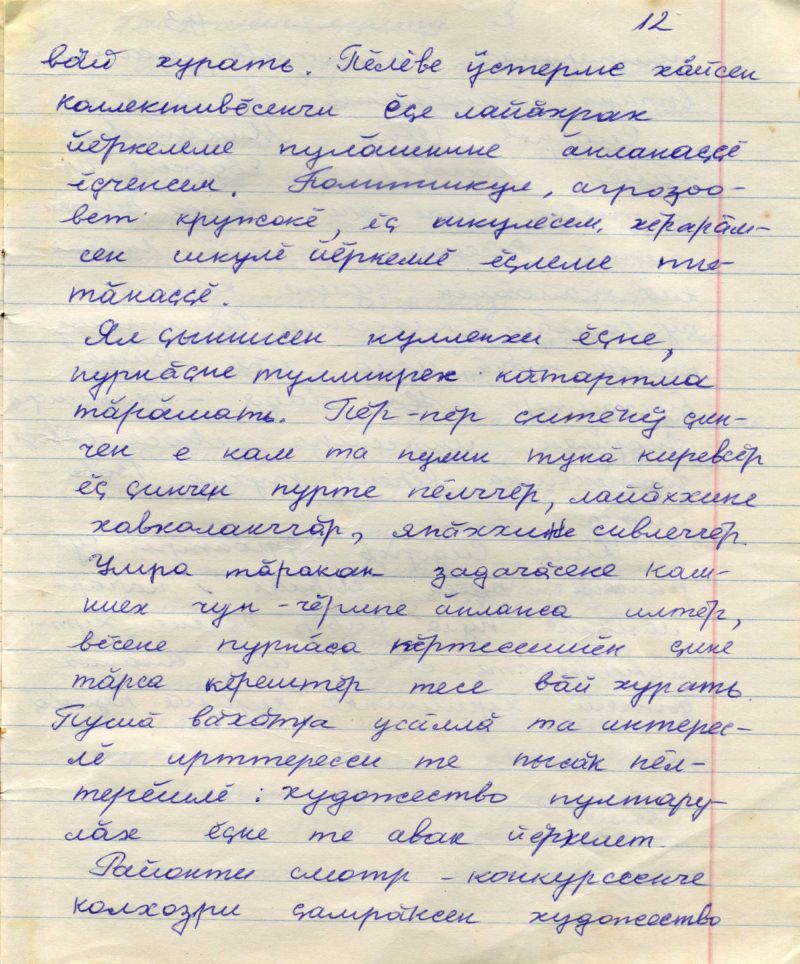 12
вӑй хурать. Пӗлӗве ӳстерме хӑйсен
коллективӗсенчи ӗҫе лайӑхрах
йӗркелеме пулӑшнине ӑнланаҫҫӗ
ӗҫченсем. Политшкул, агрозоо-
вет кружокӗ, ӗҫ шкулӗсем, хӗрарӑм-
сен шкулӗ йӗркеллӗ ӗҫлеме пы-
тӑнаҫҫӗ.
Ял ҫыннисен кулленхи ӗҫне,
пурнӑҫне туллинрех кӑтартма
тӑрӑшать. Пӗр-пӗр ҫитӗнӳ ҫин-
чен е кам та пулин тунӑ киревсӗр
ӗҫ ҫинчен пурте пӗлччӗр, лайӑххине
хавхаланччӑр, япӑххине сивлеччӗр.
Умра тӑракан задачӑсене каш-
ниех чун-чӗрипе ӑнланса илтӗр,
вӗсене пурнӑҫа кӗртессишӗн ҫине
тӑрса кӗрештӗр тесе вӑй хурать.
Пушӑ вӑхӑтра усӑллӑ та интерес-
лӗ ирттересси те пысӑк пӗл-
терӗшлӗ: художество пултару-
лӑх ӗҫне те авак йӗркелет.
Районти смотр-конкурссенче
колхозри ҫамрӑксен художество